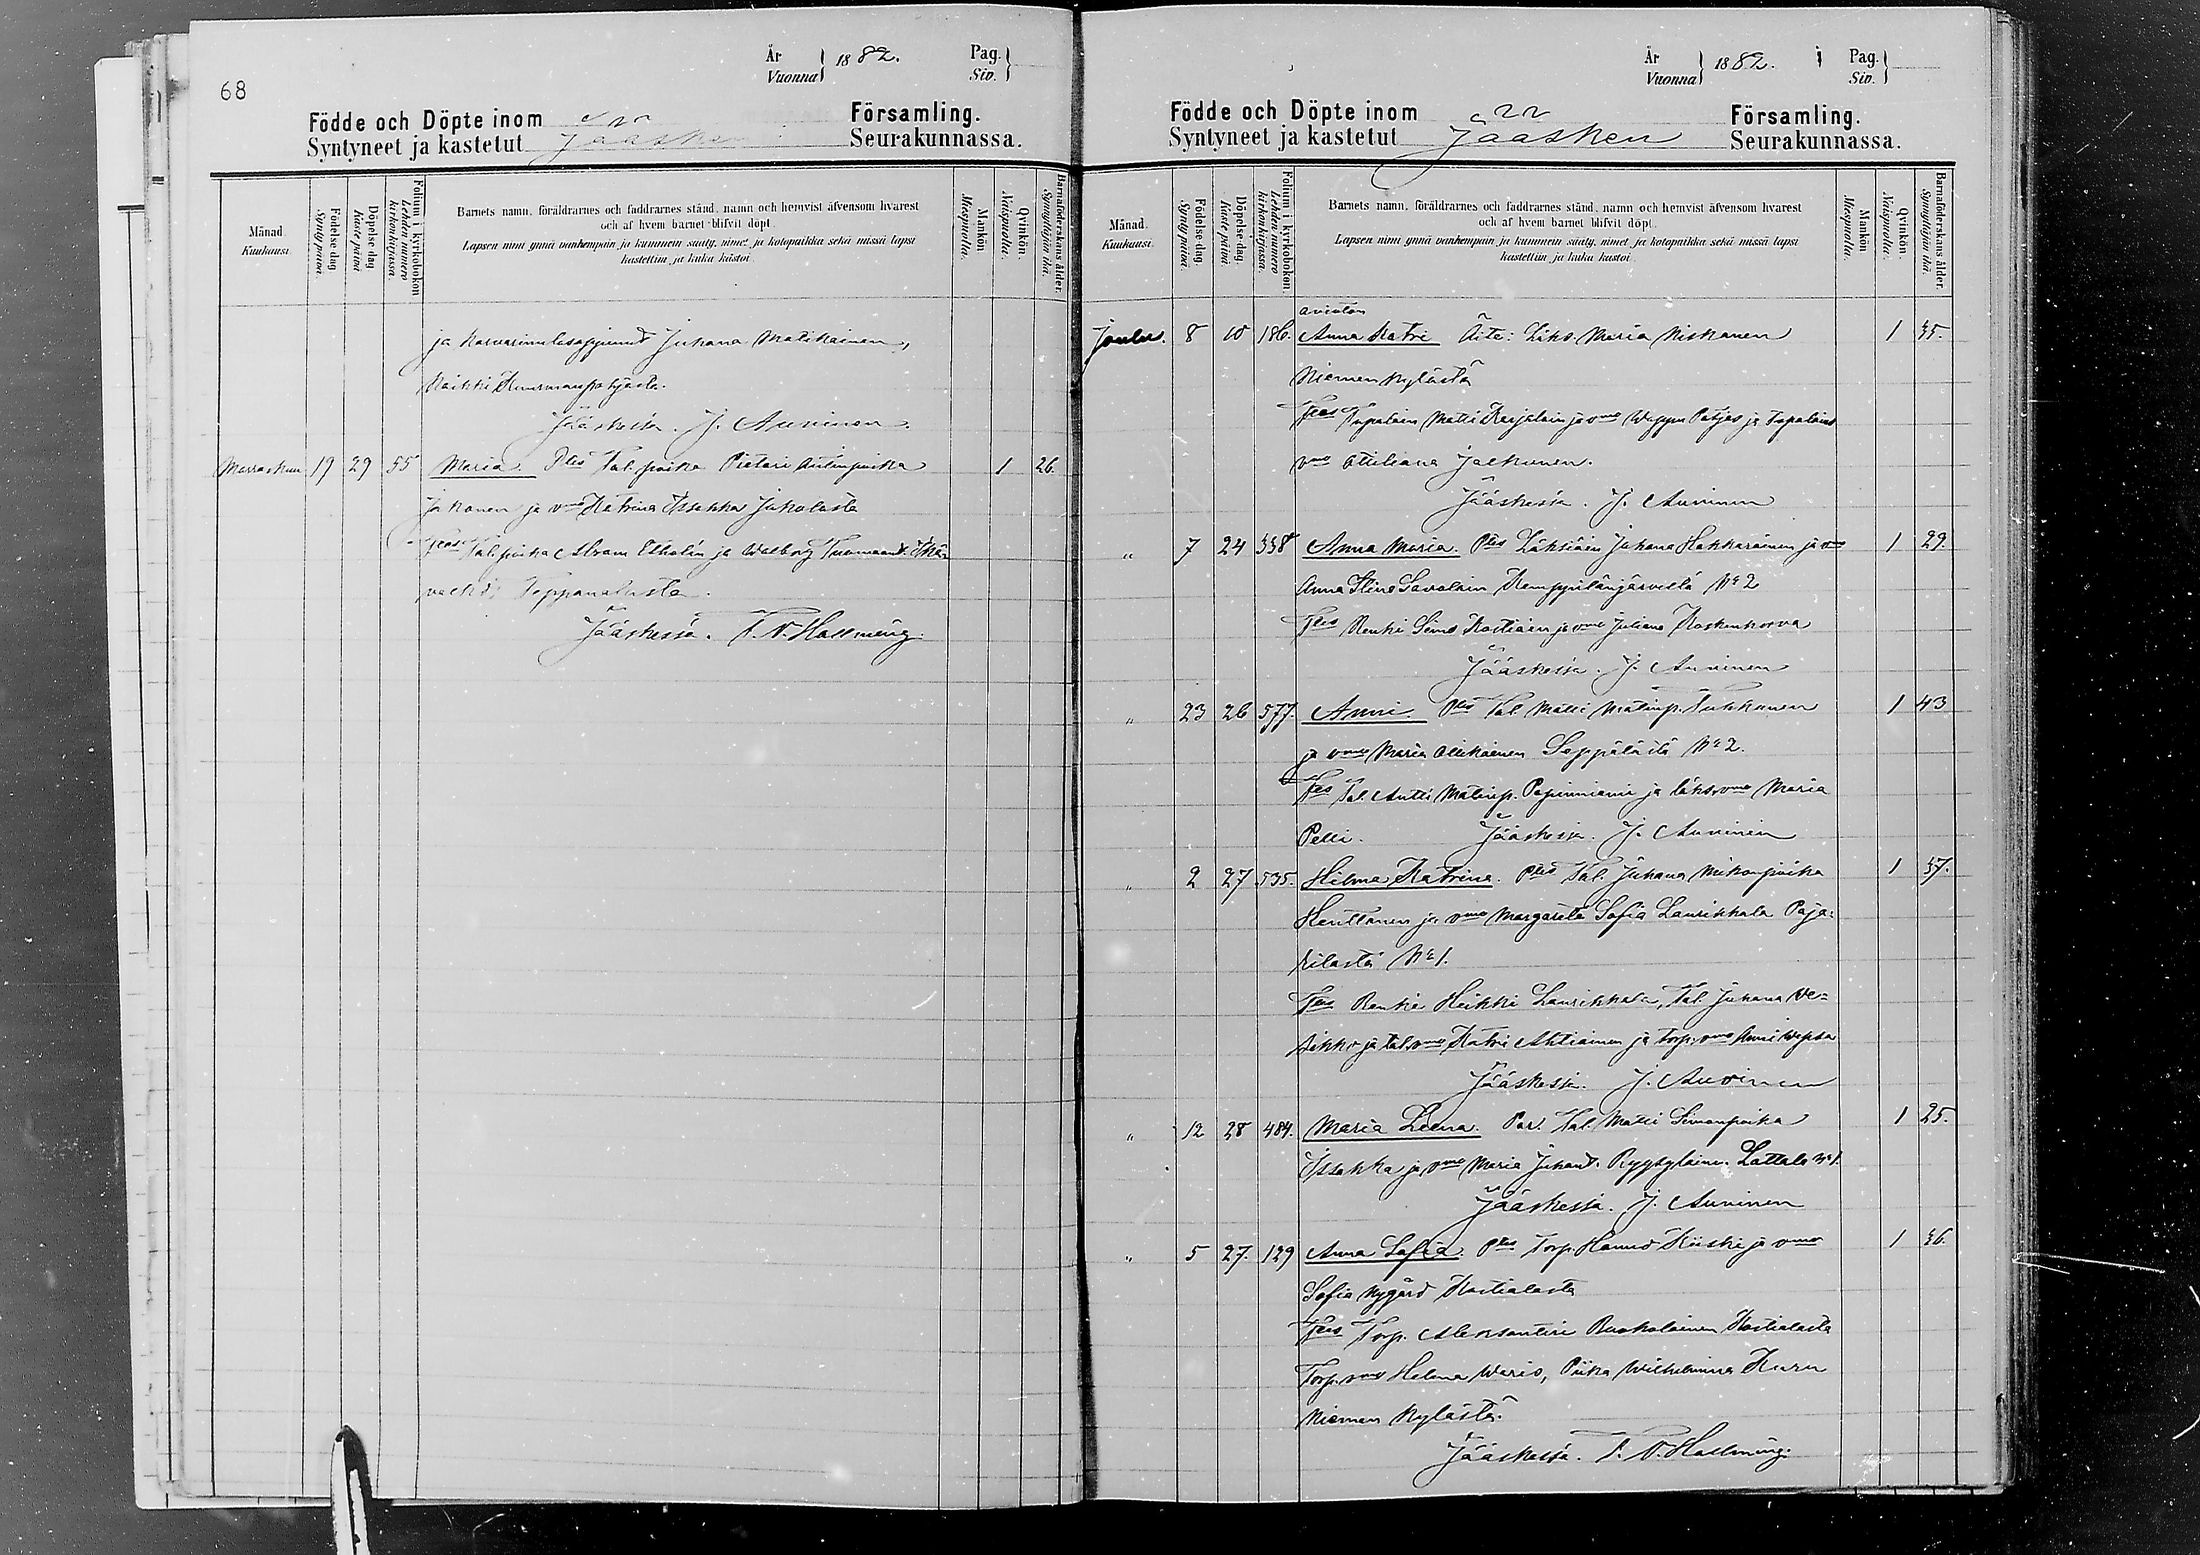 68
År
Vuonna } 1882. Pag.
Siv. }
Födde och Döpte inom
Syntyneet ja kastetut Jääsken Församling.
Seurakunnassa.
Månad.
Kuukausi.
Födelse dag.
Synty päivä.
Döpelse dag
Kaste päivä
Folium i kyrkoboken
Lehden numero
kirkonkirjassa.
Barnets namn, föräldrarnes och faddrarnes stånd, namn och hemvist äfvensom hvarest
och af hvem barnet blifvit döpt.
Lapsen nimi ynnä vanhempain ja kummein sääty, nimet ja kotopaikka sekä missä lapsi
kastettiin ja kuka kastoi.
Mankön
Miespuolta.
Qvinkön.
Naispuolta.
Barnaföderskans ålder.
Synnyttäjän ikä.
ja Juhana Matikainen,
Kaikki
Jääskessä. J. Auvinen.
Marraskuu 19 29 55 Maria Plis Tal. poika Pietari Antinpoika 1 26.
ja vmo Katrina Issakka Jakolasta
Tal. poika Abram Etholén ja Walborg
Jääskessä. T. W. Hallmeng.
År
Vuonna } 1882. Pag.
Siv. }
Födde och Döpte inom
Syntyneet ja kastetut Jääsken Församling.
Seurakunnassa.
Månad.
Kuukausi.
Födelse dag.
Synty päivä.
Döpelse dag.
Kaste päivä
Folium i kyrkoboken
Lehden numero
kirkonkirjassa.
Barnets namn, föräldrarnes och faddrarnes stånd, namn och hemvist äfvensom hvarest
och af hvem barnet blifvit döpt.
Lapsen nimi ynnä vanhempain ja kummein sääty, nimet ja kotopaikka sekä missä lapsi
kastettiin ja kuka kastoi.
Mankön
Miespuolta.
Qvinkön.
Naispuolta.
Barnaföderskans ålder.
Synnyttäjän ikä.
avioton
Joulu. 8 10 186. Anna Katri Äiti: Maria Niskanen 1 35.
Niemen kylästä
Matti Karjalain ja vmo ja
vmo Juliana Jalkanen.
Jääskessä. J. Auvinen
" 7 24 338 Anna Maria. Plis Juhana Hakkarainen ja vmo 1 29.
Anna Stina Savolain Kemppilänjärveltä No 2
Renki Simo ja vmo Juliana Koskenkorva
Jääskessä. J. Auvinen
" 23 26 577. Anni. Plis Tal. Matti Matinp. Tukkanen 1 43
ja vmo Maria Ollikainen Seppälästä No 2.
Tal. Antti Matinp. Papinniemi ja vmo Maria
Pelli. Jääskessä. J. Auvinen
" 2 27 535. Hilma Katrina. Plis Tal. Juhana Mikonpoika 1 37.
Henttonen ja vmo Margareta Sofia Laurikkala Paja-
rilasta No 1.
Renki Heikki Laurikkala, Tal. Juhana Ve-
sikko ja tal. vmo Katri Ahtiainen ja Torp. vmo Anni Wepsä
Jääskessä. J. Auvinen
" 12 28 484. Maria Leena. Par. Tal. Matti Simonpoika 1 25.
Issakka ja vmo Maria Juhant. Lattala No 1.
Jääskessä. J. Auvinen
" 5 27. 129 Anna Sofia. Plis Torp. Hannes Kiiski ja vmo 1 36.
Sofia Nygård Kostialasta
Torp. Aleksanteri Ruokolainen Kostialasta
Torp. vmo Helena Waris, Piika Wilhelmina Kuru
Niemen kylästä.
Jääskessä. T. W. Hallmeng.